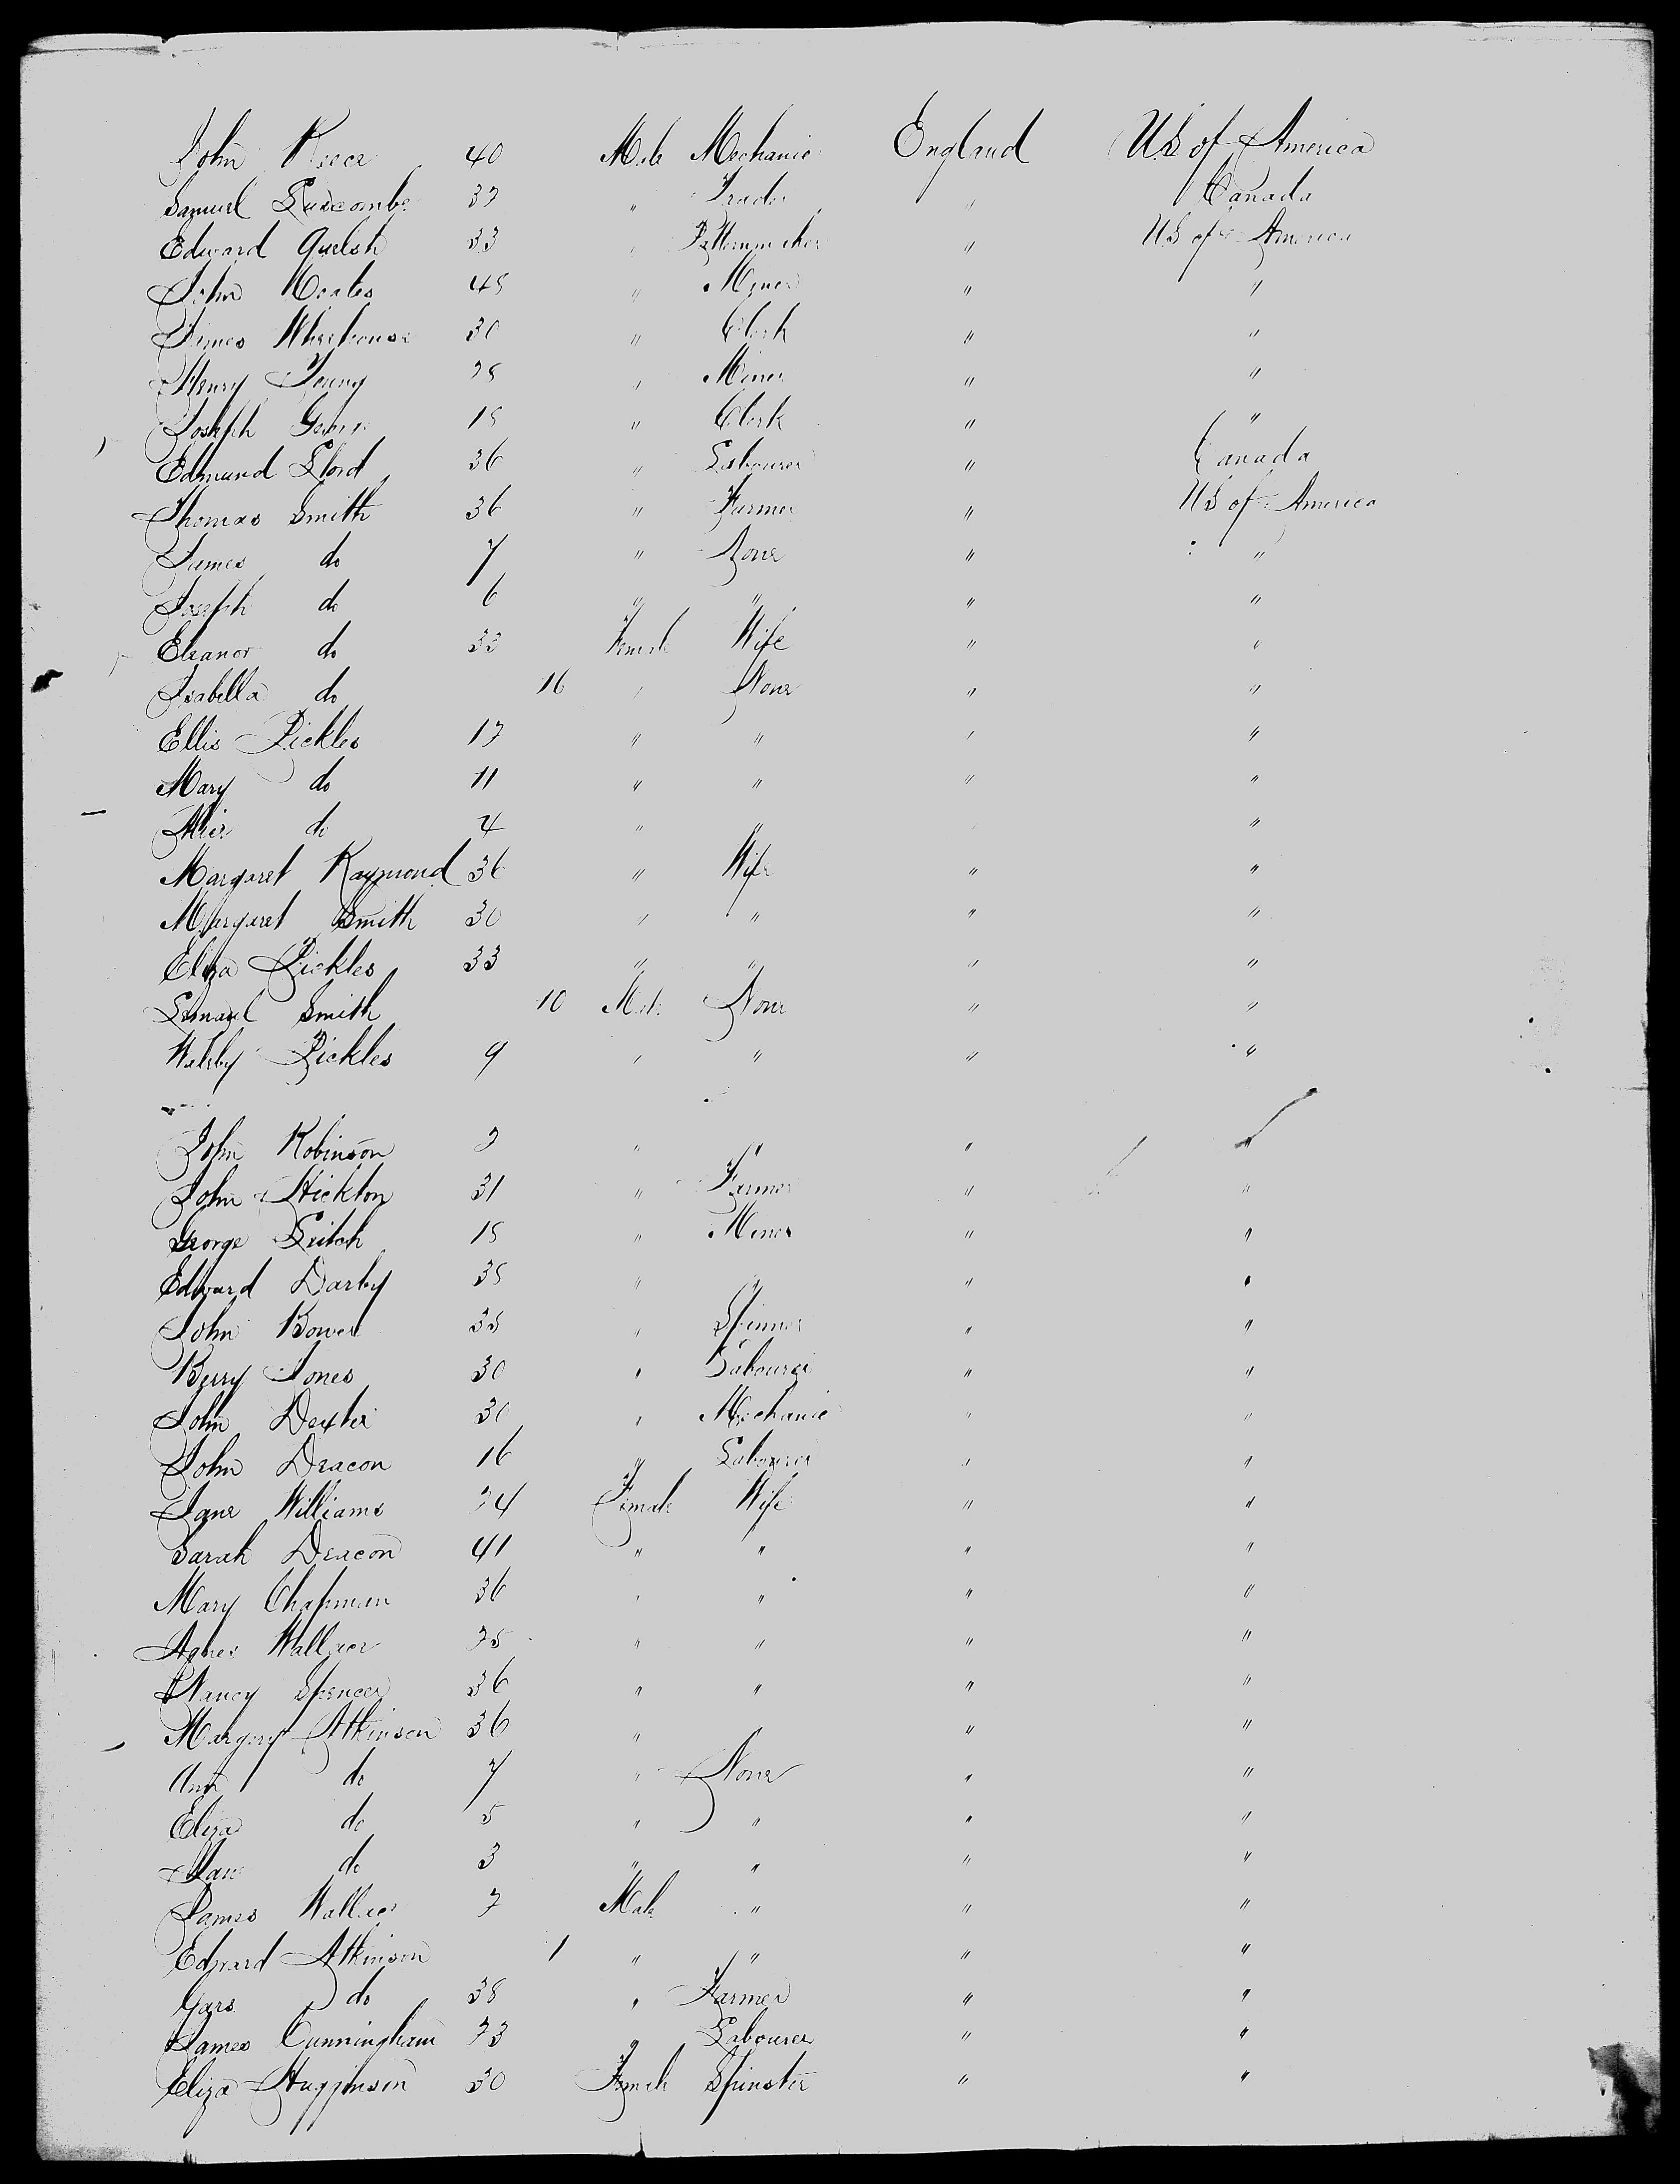 John Reece 40 Male Mechanic England US of America
Samuel Luscombe 37 " Trader " Canada
Edward Quelsh 33 " Patternmaker " US of America
John Coates 48 " Miner " "
James Wheelhouse 30 " Clerk " "
Henry Young 28 " Miner " "
Joseph 18 " Clerk " "
Edmund Lloyd 36 " Labourer " Canada
Thomas Smith 36 " Farmer " US of America
James do 7 " None " "
Joseph do 6 " " " "
Eleanor do 33 Female Wife " "
Isabella do 16 " None " "
Ellis Pickles 17 " " " "
Mary do 11 " " " "
Alice do 4 " " " "
Margaret Raymond 36 " Wife " "
Margaret Smith 30 " " " "
Eliza Pickles 33 " " " "
Smith 10 Male None " "
Pickles 9 " " " "
John Robinson " " " "
John Hickton 31 " Farmer " "
George Leitch 18 " Miner " "
Edward Darby 38 " " " "
John Bower 38 " Spinner " "
Berry Jones 30 " Labourer " "
John Dexter 30 " Mechanic " "
John Deacon 16 " Labourer " "
Jane Williams 24 Female Wife " "
Sarah Deacon 41 " " " "
Mary Chapman 36 " " " "
Agnes Wallace 25 " " " "
Nancy Spencer 36 " " " "
Margery Atkinson 36 " " "
Ann do 7 " None " "
Eliza do 5 " " " "
do 3 " " " "
James Wallace 7 Male " " "
Edward Atkinson 1 " " " "
do 38 " Farmer " "
James Cunningham 23 " Labourer " "
Eliza Hugginson 30 Female Spinster " "